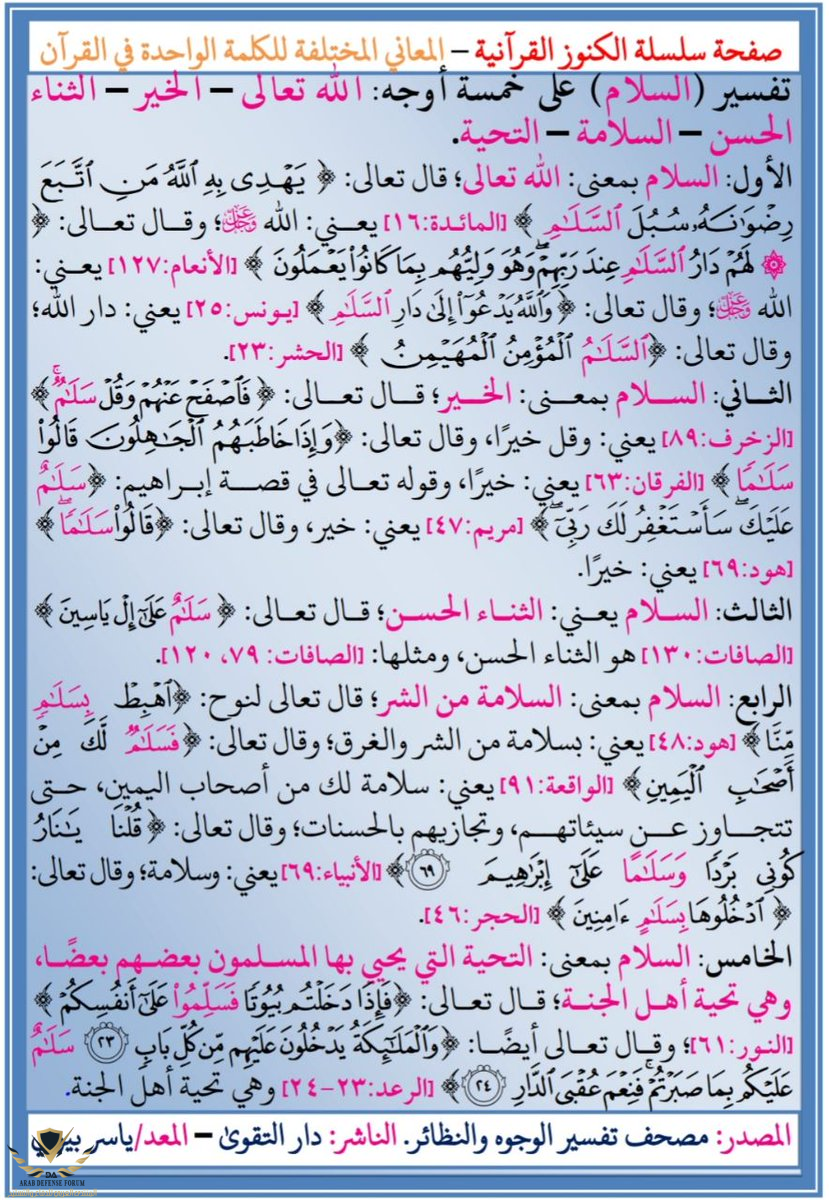 صفحة سلسلة الكنوز القرآنية – المعاني المختلفة للكلمة الواحدة في القرآن
تفسير (السلام) على خمسة أوجه: الله تعالى – الخير – الثناء
الحسن – السلامة – التحية.
الأول: السلام بمعنى: الله تعالى؛ قال تعالى: ﴿ يَهْدِى بِهِ ٱللَّهُ مَنِ ٱتَّبَعَ
رِضْوَٰنَهُۥ سُبُلَ ٱلسَّلَٰمِ ﴾ [المائدة:١٦] يعني: الله ﷻ؛ وقال تعالى: ﴿
۞ لَهُمْ دَارُ ٱلسَّلَٰمِ عِندَ رَبِّهِمْ ۖ وَهُوَ وَلِيُّهُم بِمَا كَانُوا۟ يَعْمَلُونَ ﴾ [الأنعام:١٢٧] يعني:
الله ﷻ؛ وقال تعالى: ﴿وَٱللَّهُ يَدْعُوٓا۟ إِلَىٰ دَارِ ٱلسَّلَٰمِ ﴾ [يونس:٢٥] يعني: دار الله؛
وقال تعالى: ﴿ٱلسَّلَٰمُ ٱلْمُؤْمِنُ ٱلْمُهَيْمِنُ ﴾ [الحشر:٢٣].
الثاني: السلام بمعنى: الخير؛ قال تعالى: ﴿ فَٱصْفَحْ عَنْهُمْ وَقُلْ سَلَٰمٌ ۚ ﴾
[الزخرف:٨٩] يعني: وقل خيرًا، وقال تعالى: ﴿وَإِذَا خَاطَبَهُمُ ٱلْجَٰهِلُونَ قَالُوا۟
سَلَٰمًا ﴾ [الفرقان:٦٣] يعني: خيرًا، وقوله تعالى في قصة إبراهيم: ﴿سَلَٰمٌ
عَلَيْكَ ۖ سَأَسْتَغْفِرُ لَكَ رَبِّىٓ ۖ ﴾ [مريم:٤٧] يعني: خير، وقال تعالى: ﴿قَالُوا۟ سَلَٰمًا ۖ ﴾
[هود:٦٩] يعني: خيرًا.
الثالث: السلام يعني: الثناء الحسن؛ قال تعالى: ﴿ سَلَٰمٌ عَلَىٰٓ إِلْ يَاسِينَ ﴾
[الصافات:١٣٠] هو الثناء الحسن، ومثلها: [الصافات: ٧٩، ١٢٠].
الرابع: السلام بمعنى: السلامة من الشر؛ قال تعالى لنوح: ﴿ٱهْبِطْ بِسَلَٰمٍ
مِّنَّا ﴾ [هود:٤٨] يعني: بسلامة من الشر والغرق؛ وقال تعالى: ﴿فَسَلَٰمٌ لَّكَ مِنْ
أَصْحَٰبِ ٱلْيَمِينِ﴾ [الواقعة:٩١] يعني: سلامة لك من أصحاب اليمين، حتى
تتجاوز عن سيئاتهم، وتجازيهم بالحسنات؛ وقال تعالى: ﴿ قُلْنَا يَٰنَارُ
كُونِى بَرْدًا وَسَلَٰمًا عَلَىٰٓ إِبْرَٰهِيمَ ٦٩﴾ [الأنبياء:٦٩] يعني: وسلامة؛ وقال تعالى:
﴿ ٱدْخُلُوهَا بِسَلَٰمٍ ءَامِنِينَ ﴾ [الحجر:٤٦].
الخامس: السلام بمعنى: التحية التي يحيي بها المسلمون بعضهم بعضًا،
وهي تحية أهل الجنة؛ قال تعالى: ﴿فَإِذَا دَخَلْتُم بُيُوتًا فَسَلِّمُوا۟ عَلَىٰٓ أَنفُسِكُمْ ﴾
[النور:٦١]؛ وقال تعالى أيضًا: ﴿وَٱلْمَلَٰٓئِكَةُ يَدْخُلُونَ عَلَيْهِم مِّن كُلِّ بَابٍ ٢٣ سَلَٰمٌ
عَلَيْكُم بِمَا صَبَرْتُمْ ۚ فَنِعْمَ عُقْبَى ٱلدَّارِ ٢٤﴾ [الرعد:٢٣-٢٤] وهي تحية أهل الجنة.
المصدر: مصحف تفسير الوجوه والنظائر. الناشر: دار التقوىٰ – المعد/ياسر
DA
ARAB DEFENSE FORUM